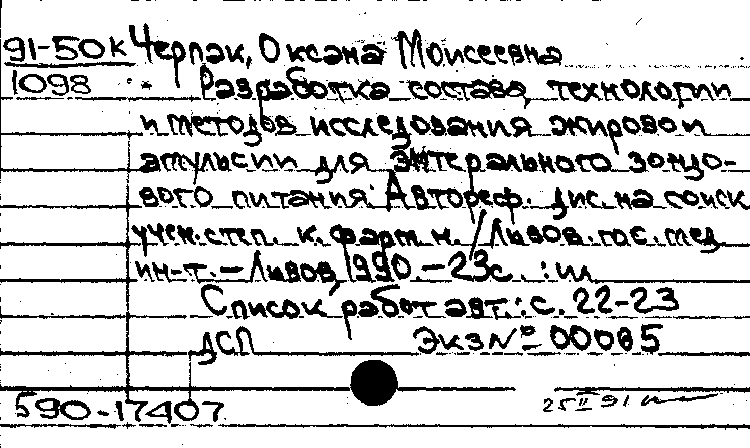 91-50к Черпак, Оксана Моисеевна
1098 Разработка состава, технологии
и методов исследования жировой
эмульсии для энтерального зондо-
вого питания: Автореф. дис. на соиск
учен. степ. к. фарм. н. / Львов. гос. мед.
ин-т. - Львов, 1990. - 23 с. : ил
Список работ авт.: с. 22-23
ДСП Экз № 00085
590-17407 25 II 91